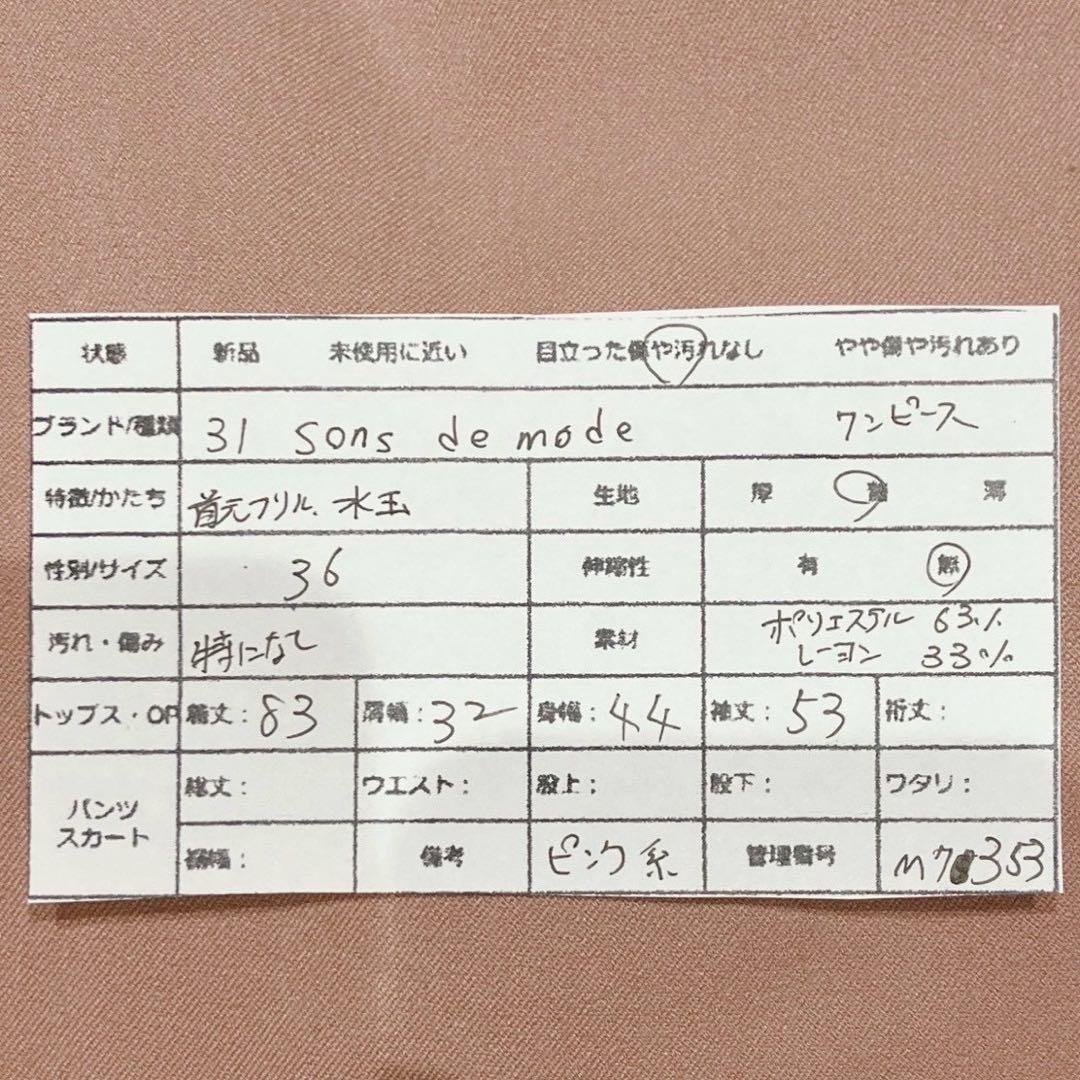 状態 新品 未使用に近い 目立った傷や汚れなし やや傷や汚れあり
ブランド/種類 31 Sons de mode ワンピース
特徴/かたち 首元フリル、水玉 生地 厚 普 薄
性別/サイズ 36 伸縮性 有 無
汚れ・傷み 特になし 素材 ポリエステル 63%
レーヨン 33%
トップス・OP 着丈: 83 肩幅: 32 身幅: 44 袖丈: 53 裄丈:
パンツ
スカート
総丈: ウエスト: 股上: 股下: ワタリ:
裾幅: 備考 ピンク系 管理番号 M7 353